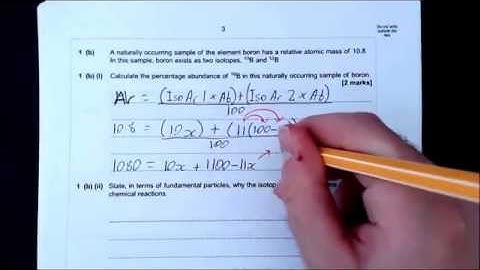 3
Do not write outside the box
1 (b) A naturally occurring sample of the element boron has a relative atomic mass of 10.8
In this sample, boron exists as two isotopes, ¹⁰B and ¹¹B
1 (b) (i) Calculate the percentage abundance of ¹⁰B in this naturally occurring sample of boron.
[2 marks]
Ar = (Iso Ar 1 × Ab) + (Iso Ar 2 × Ab)
100
10.8 = (10x) + (11(100-
100
1080 = 10x + 1100 - 11x
1 (b) (ii) State, in terms of fundamental particles, why the isotop
chemical reactions.